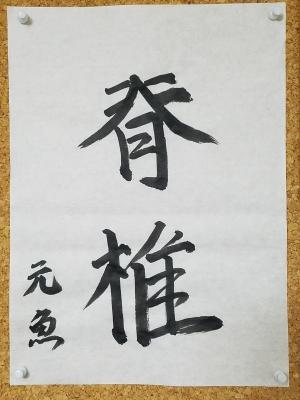 脊椎
元魚